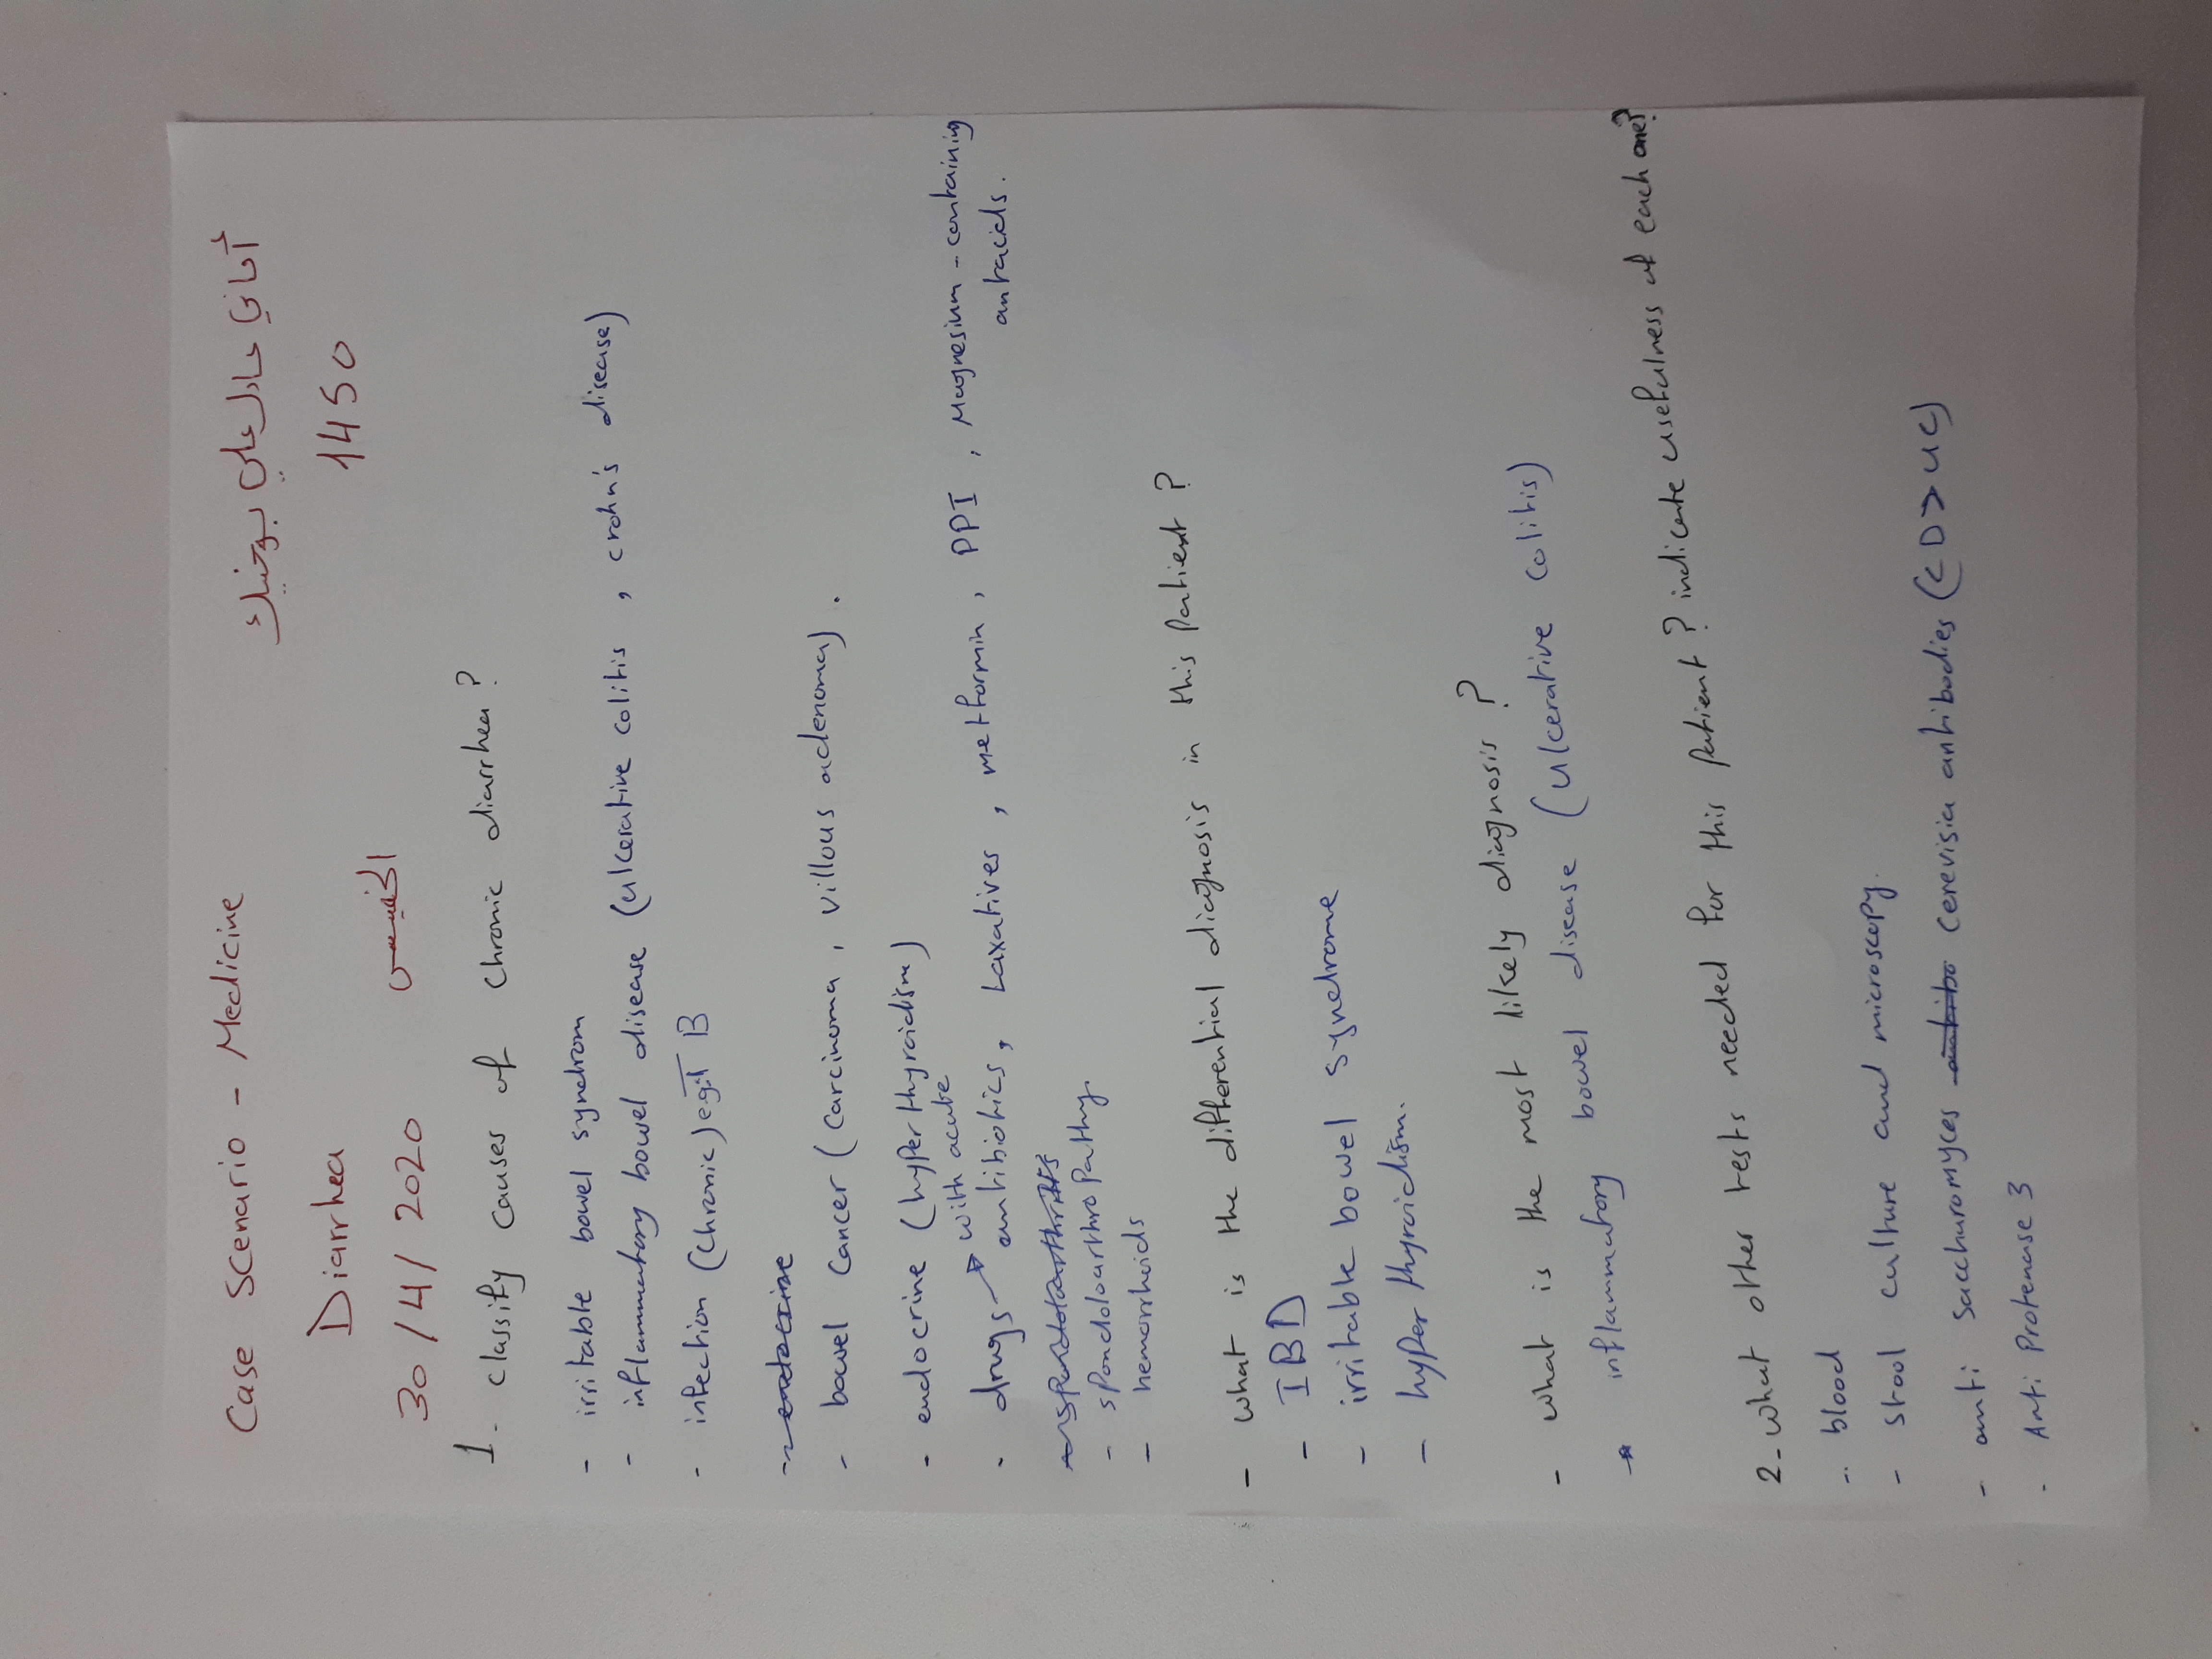 Case Scenario - Medicine
أماني عادل علي بوخنيك
Diarrhea
1450
30/4/2020 الخميس
1- classify causes of chronic diarrhea?
- irritable bowel syndrom
- inflammatory bowel disease (ulcerative colitis, crohn's disease)
- infection (chronic) eg: TB
- endocrine
- bowel cancer (carcinoma, villous adenoma).
- endocrine (hyperthyroidism)
- drugs → with acute antibiotics, Laxatives, metformin, PPI, Magnesium-containing antacids.
- spondoloarthropathy
- hemorrhoids
- what is the differential diagnosis in this patient?
- IBD
- irritable bowel syndrome
- hyperthyroidism.
- what is the most likely diagnosis?
* inflammatory bowel disease (ulcerative colitis)
2- what other tests needed for this patient? indicate usefulness of each one?
- blood
- stool culture and microscopy.
- anti saccharomyces cerevisia antibodies (CD > UC)
- Anti Protenase 3